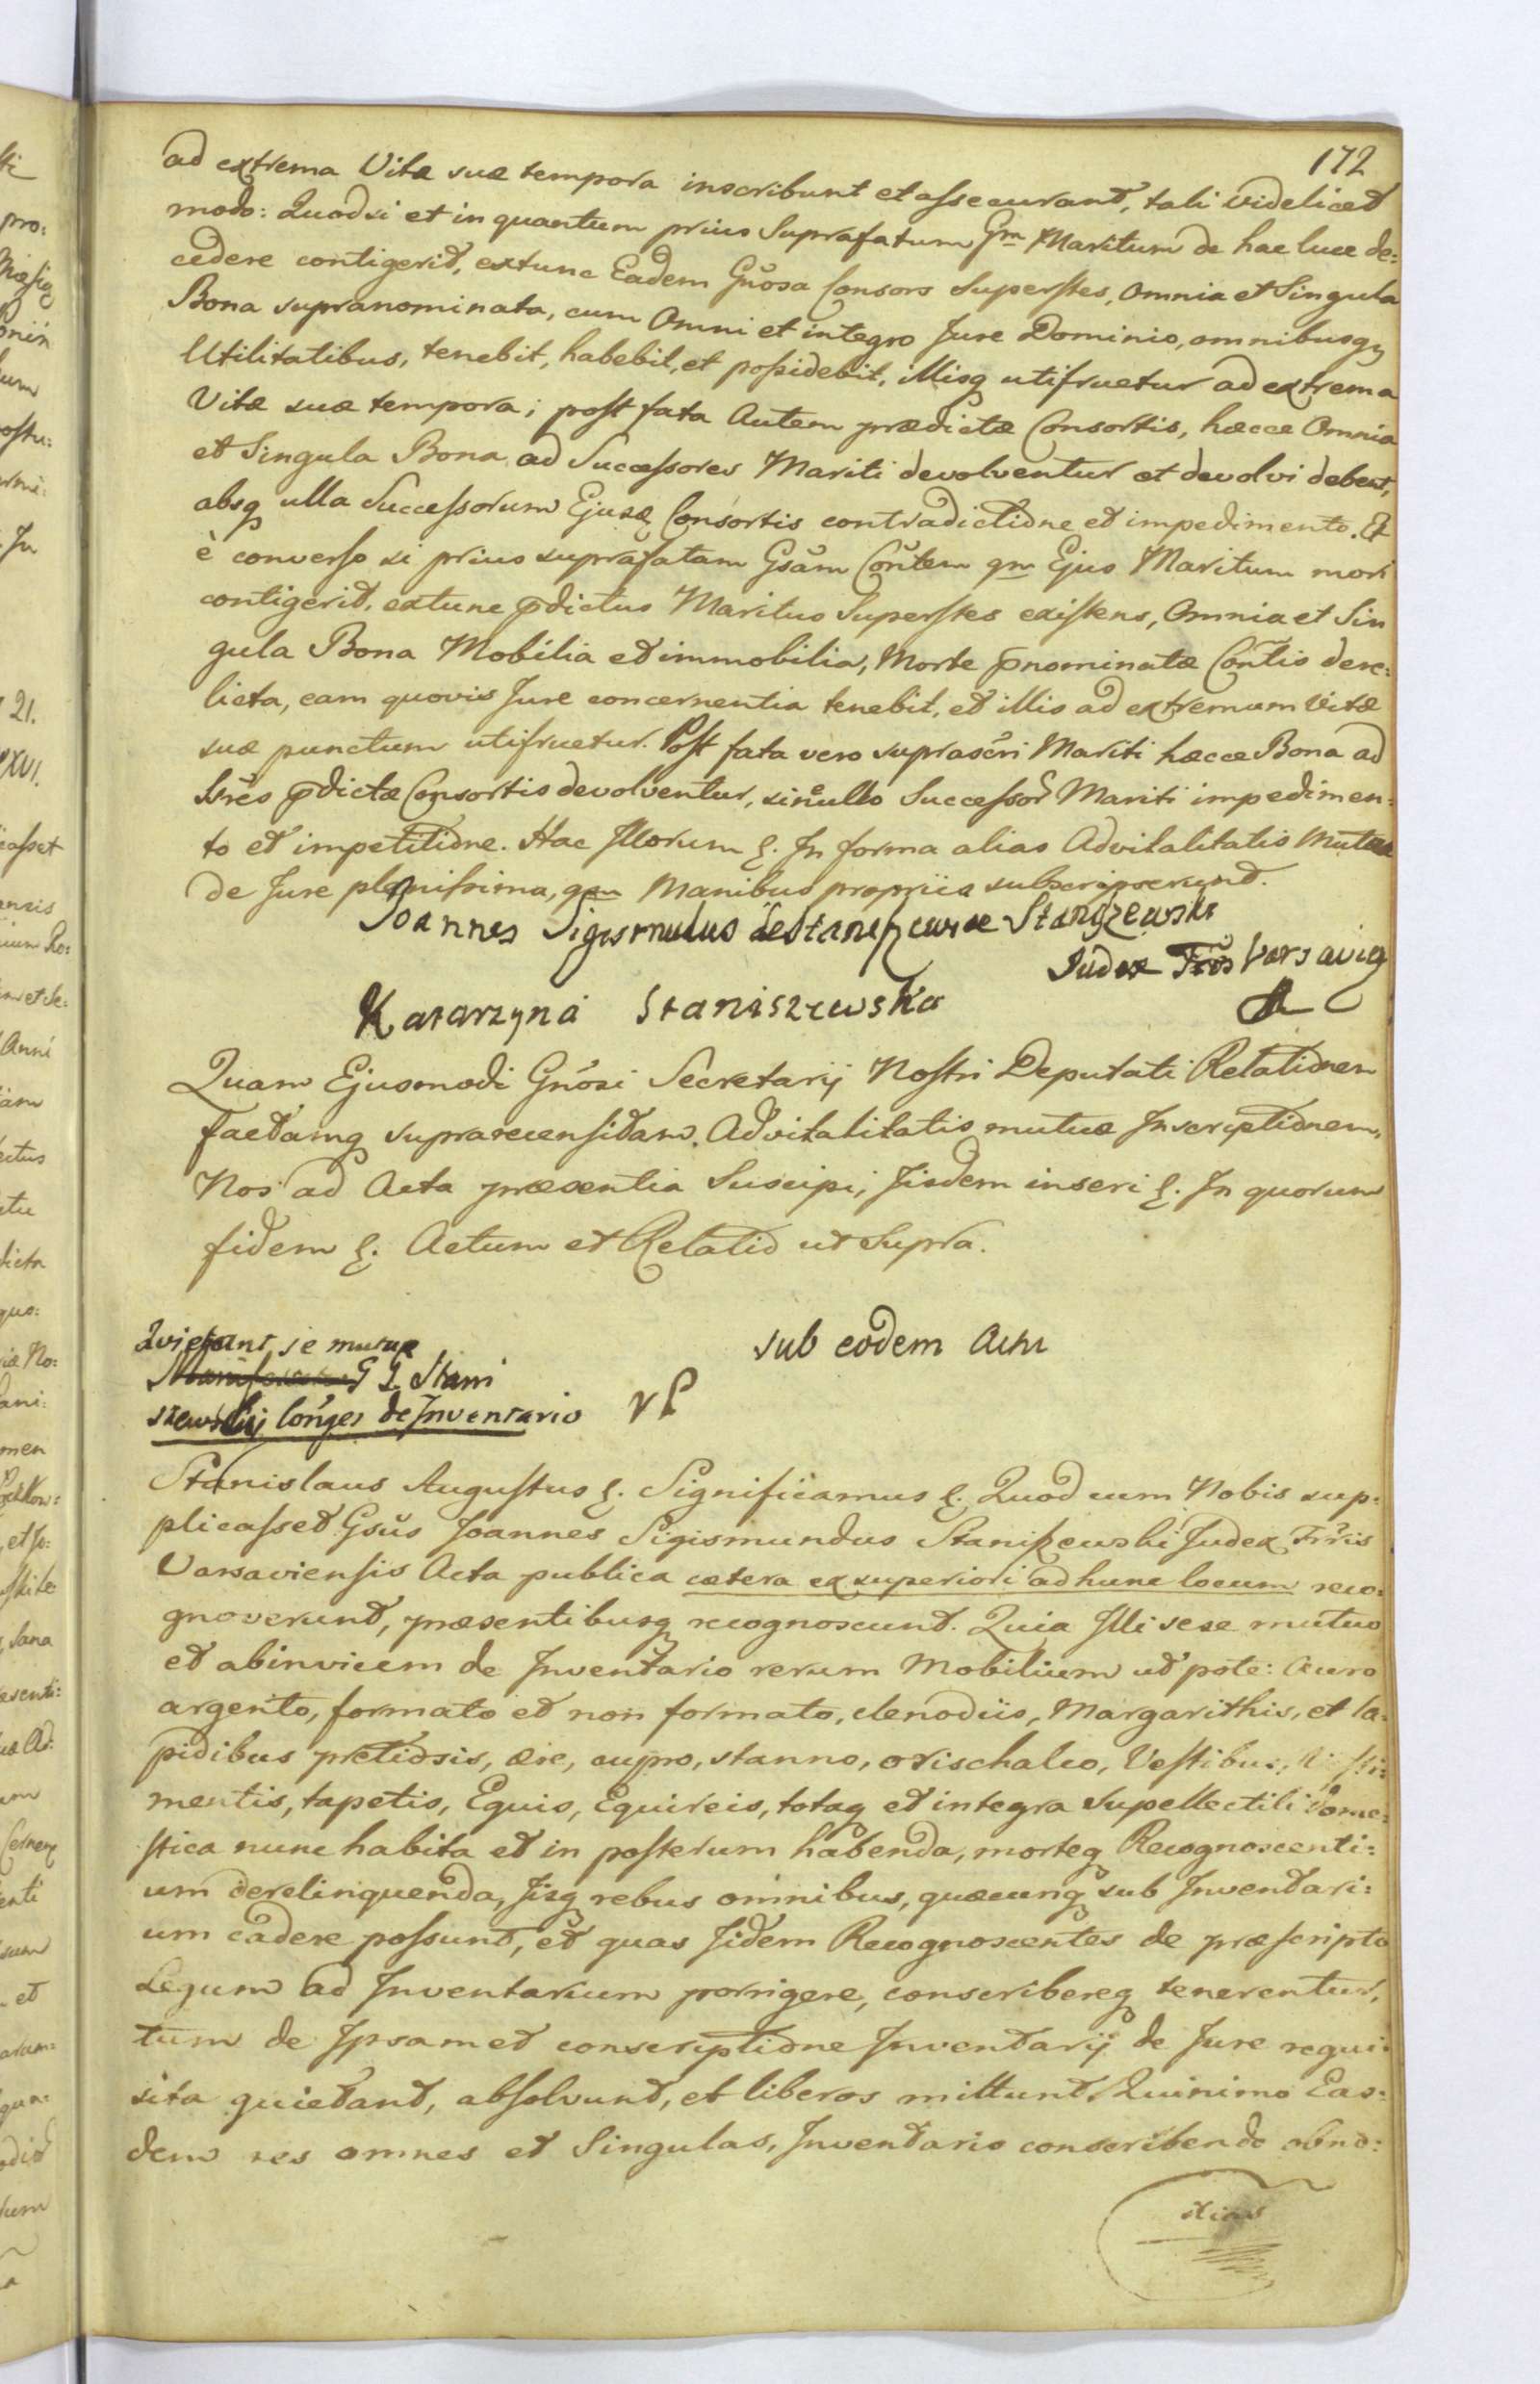 172
ad extrema Vitæ suæ tempora inscribunt et assecurant, tali videlicet
modo: Quod si et in quantum prius Suprafatum Gm Maritum de hac luce de:
cedere contigerit, extunc Eadem Gnosa Consors Superstes, Omnia et Singula
Bona supranominata, cum Omni et integro Jure Dominio, omnibusq
Utilitatibus, tenebit, habebit, et possidebit, illisq utifruetur ad extrema
Vitæ suæ tempora; post fata Autem prædictæ Consortis, hæcce Omnia
et Singula Bona ad Successores Mariti devolventur et devolvi debent,
absq ulla Successorum Ejusdę Consortis contradictione et impedimento. Et
è converso si prius suprafatam Gsam Contem qm Ejus Maritum mori
contigerit, extunc pdictus Maritus Superstes existens, Omnia et Sin
gula Bona Mobilia et immobilia, Morte pnominatæ Contis dere:
licta, eam quovis Jure concernentia tenebit, et illis ad extremum vitæ
suæ punctum utifruetur. Post fata vero suprascri Mariti hæcce Bona ad
Sres pdictæ Consortis devolventur, sine ullo Successor Mariti impedimen:
to et impetitione. Hac Illorum ꝛ. In forma alias Advitalitatis Mutuæ
de Jure plenissima, qm Manibus propriis subscripserunt.
Joannes Sigismudus de Staniszewice Staniszewski
Judex Trris Varsavien
Katarzyna Staniszewska
Quam Ejusmodi Gnosi Secretarij Nostri Deputati Relationem
factamq suprarecensitam Advitalitatis mutuæ Inscriptionem,
Nos ad Acta præsentia Suscipi, Iisdem inseri ꝛ. In quorum
fidem ꝛ. Actum et Relatio ut Supra.
Quietant se mutue
G G Stani
szewskij Conges de Inventario
Sub eodem Actu
Stanislaus Augustus ꝛ. Significamus ꝛ. Quod cum Nobis sup:
plicasset Gsus Joannes Sigismundus Staniszewski Judex Trris
Varsaviensis Acta publica cætera ex superiori ad hunc locum reco:
gnoverunt, præsentibusq recognoscunt. Quia Illi sese mutuo
et abinvicem de Inventario rerum Mobilium ut pote: Auro
argento, formato et non formato, clenodiis, Margarithis, et la:
pidibus pretiosis, ære, cupro, stanno, orischalco, Vestibus, Vesti:
mentis, tapetis, Equis, Equireis, totaq et integra supellectili dome:
stica nunc habita et in posterum habenda, morteq Recognoscenti:
um derelinquenda, Iisq rebus omnibus, quæcunq sub Inventari:
um cadere possunt, et quas Iidem Recognoscentes de præscripto
Legum ad Inventarium porrigere, conscribereq tenerentur,
tum de Ipsamet conscriptione Inventarij de Jure requi:
sita quietant, absolvunt, et liberos mittunt. Quinimo Eas:
dem res omnes et Singulas, Inventario conscribendo obno:
xias